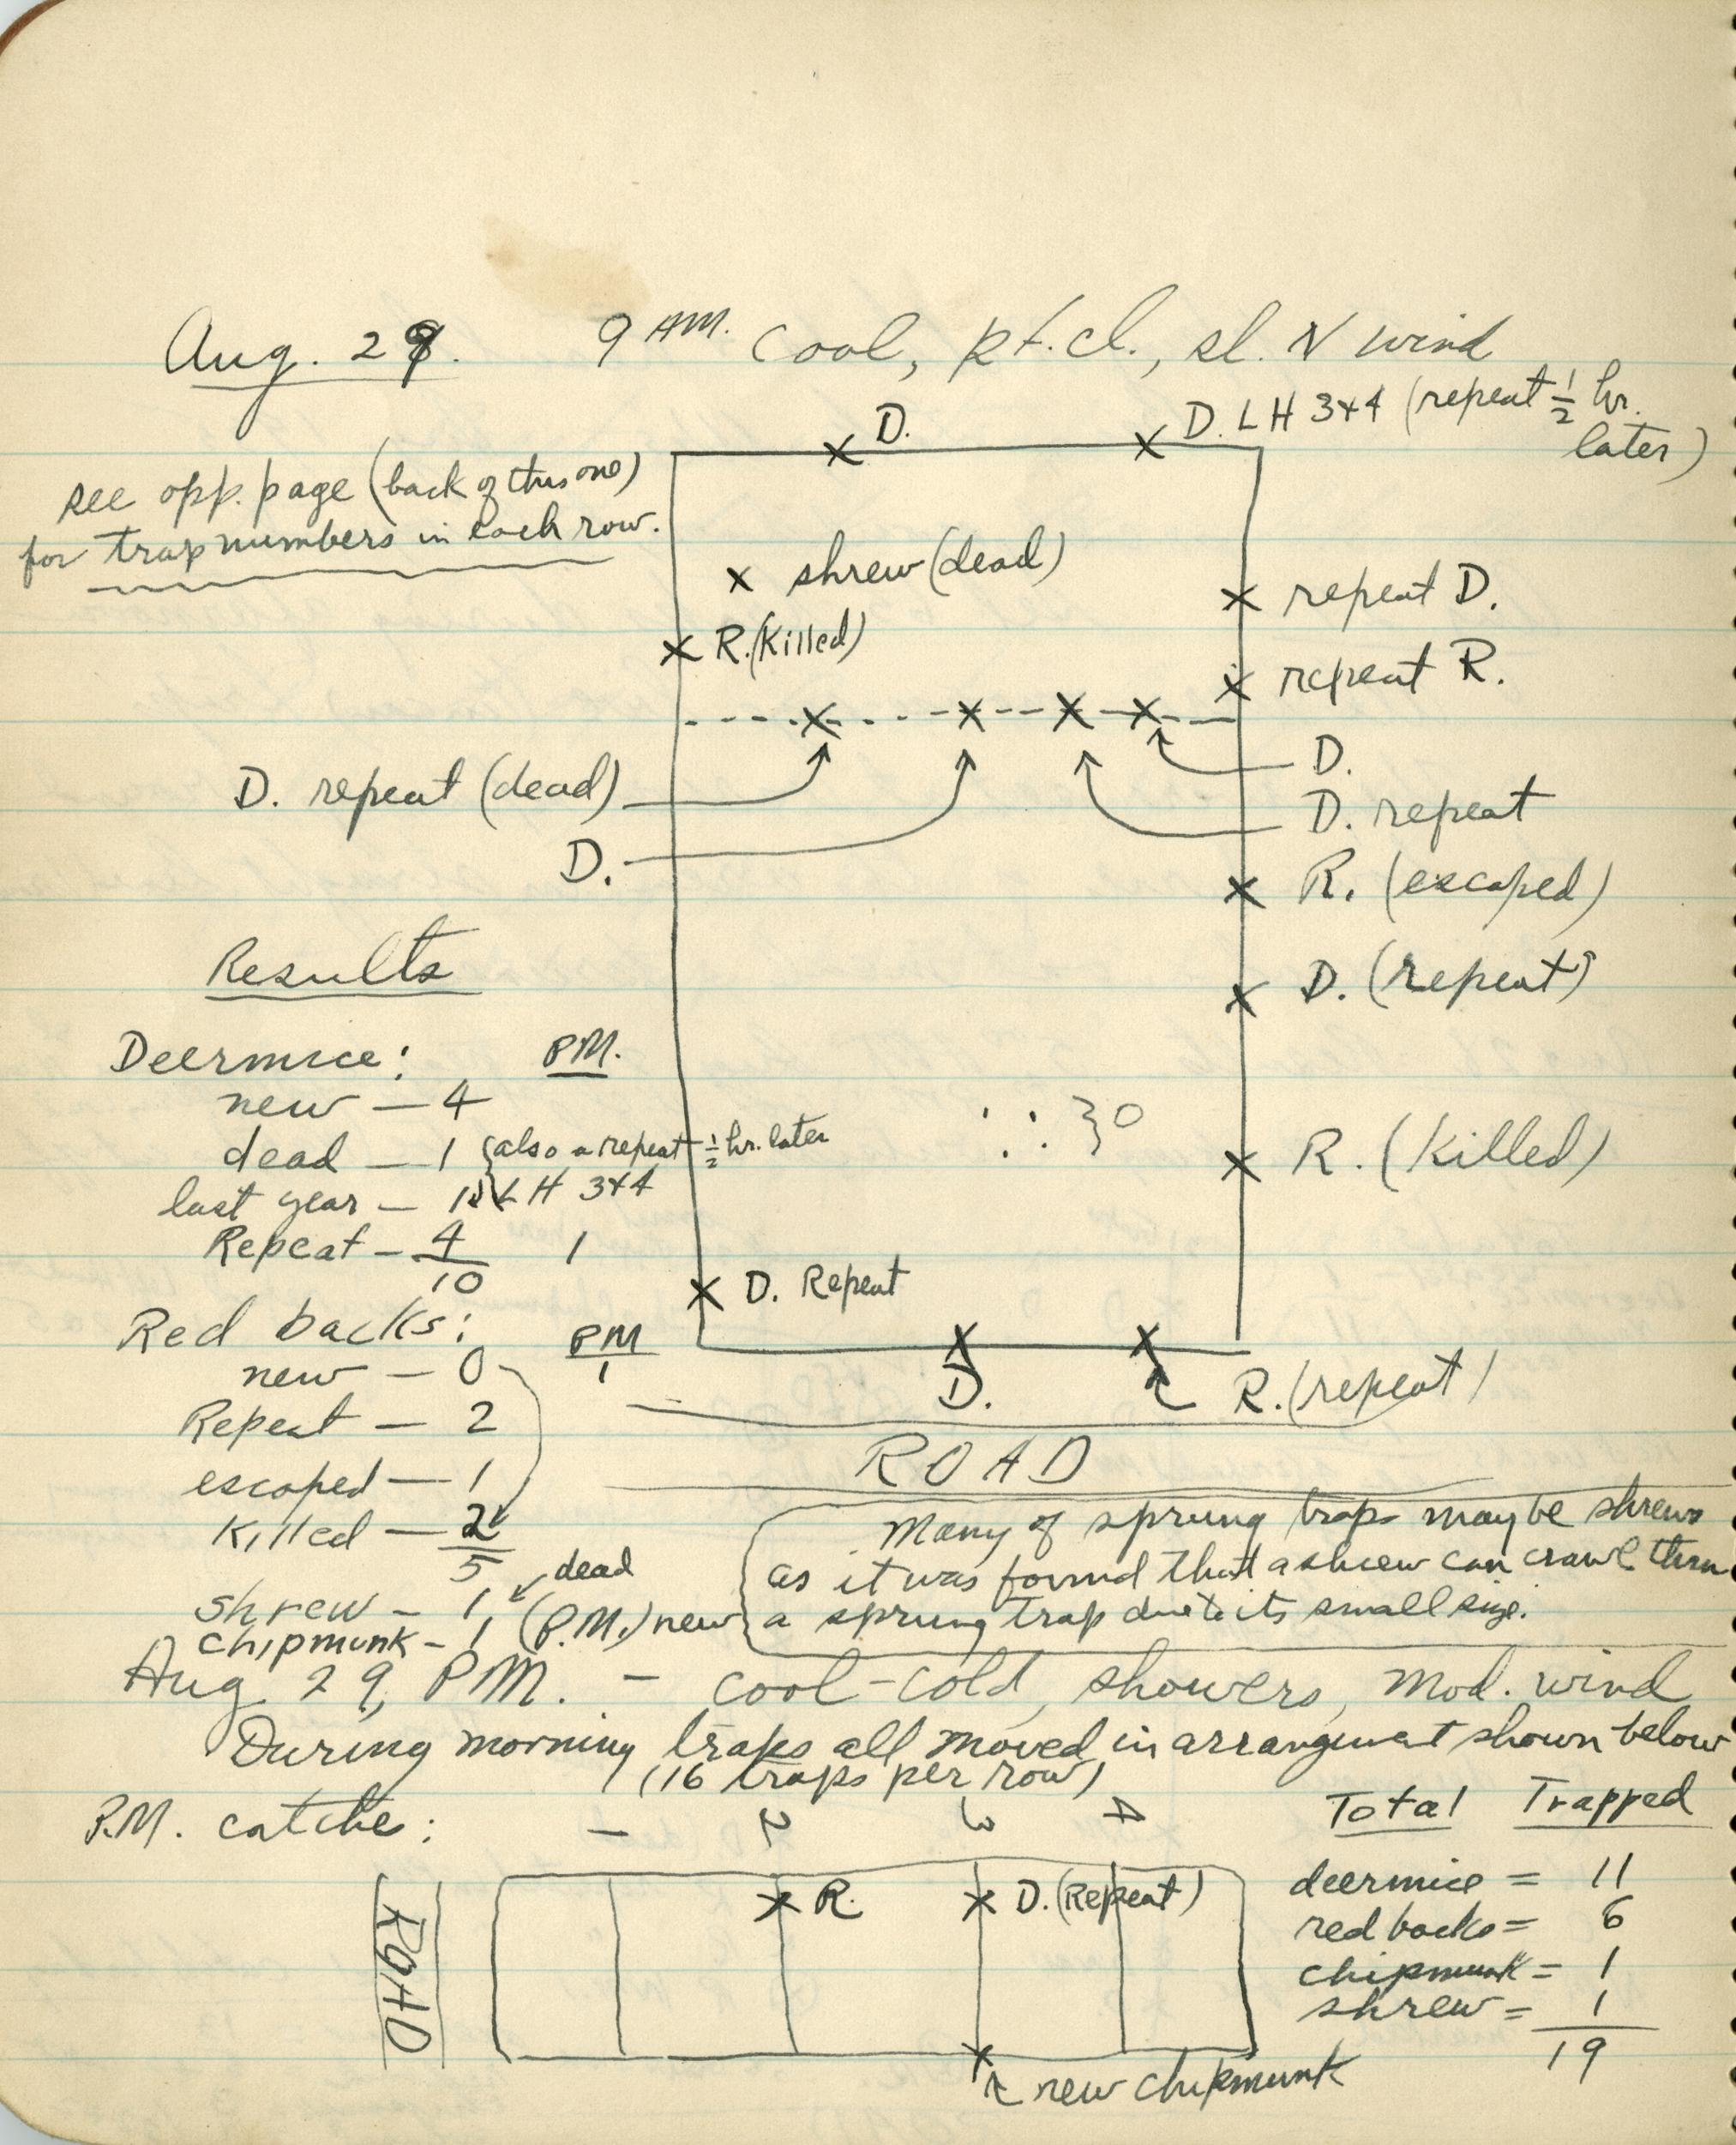 Aug. 29. 9 AM. Cool, pt. cl., sl. N wind
D.
D. LH 3+4 (repeat ½ hr. later)
see opp. page (back of this one)
for trap numbers in each row.
x shrew (dead)
x repeat D.
x R. (Killed)
x repeat R.
D. repeat (dead)
D.
D.
D. repeat
x R. (escaped)
x D. (repeat)
Results
Deermice: PM.
new — 4
dead — 1 {also a repeat ½ hr. later
last year — 1 LH 3+4
Repeat — 4 1
10
}0
x R. (Killed)
x D. Repeat
Red backs: PM
new — 0 1
Repeat — 2
escaped — 1
Killed — 2
5
D.
R. (repeat)
ROAD
shrew — 1 dead
chipmunk — 1 (P.M.) new
Many of sprung traps may be shrews
as it was found that a shrew can crawl thru
a sprung trap due to its small size.
Aug 29, P.M. — cool-cold, showers, mod. wind
During morning traps all moved in arrangement shown below
(16 traps per row)
P.M. catche:
1 2 3 4
ROAD
x R.
x D. (Repeat)
x new chipmunk
Total Trapped
deermice = 11
red backs = 6
chipmunk = 1
shrew = 1
19